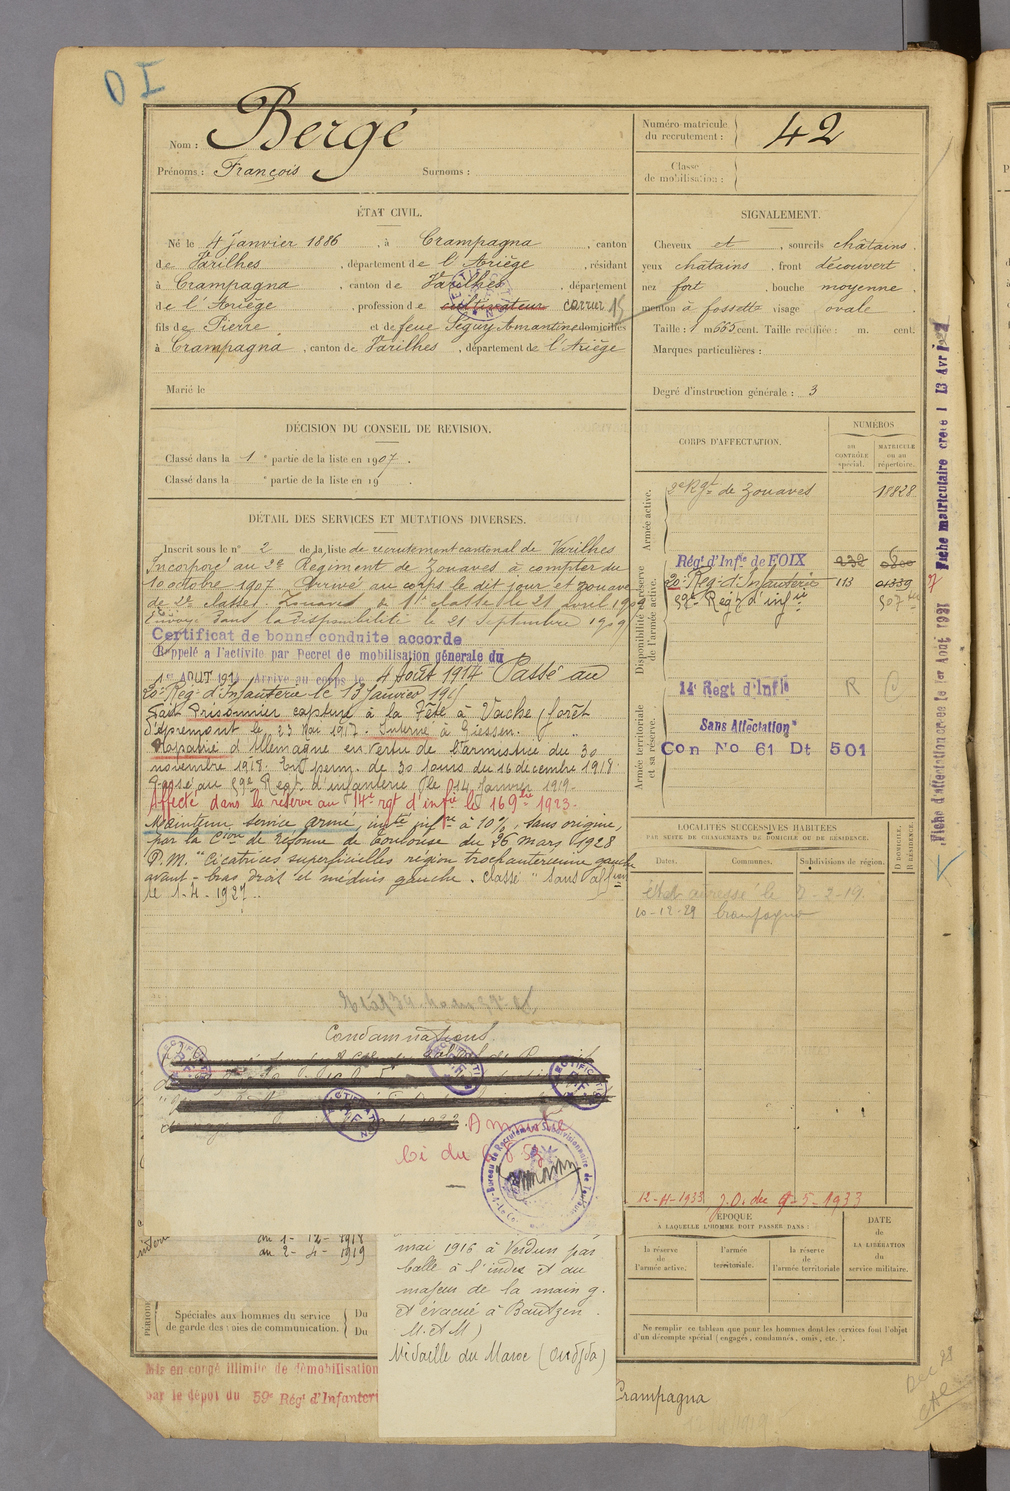 Nom : Bergé
Prénoms : François Surnoms :
Numéro matricule du recrutement : 42
Classe de mobilisation :
ÉTAT CIVIL.
Né le 4 janvier 1886, à Crampagna, canton
de Varilhes, département de l'Ariège, résidant
à Crampagna, canton de Varilhes, département
de l'Ariège, profession de cultivateur carrier 15
fils de Pierre et de feue Seguy Amantine domiciliés
à Crampagna, canton de Varilhes, département de l'Ariège
Marié le
SIGNALEMENT.
Cheveux et, sourcils châtains.
yeux châtains, front découvert
nez fort, bouche moyenne
menton à fossette visage ovale
Taille : 1 m cent. Taille rectifiée : m. cent.
Marques particulières :
Degré d'instruction générale : 3
DÉCISION DU CONSEIL DE REVISION.
Classé dans la 1e partie de la liste en 1907.
Classé dans la e partie de la liste en 19
DÉTAIL DES SERVICES ET MUTATIONS DIVERSES.
Inscrit sous le n° 2 de la liste de recrutement cantonal de Varilhes
Incorporé au 2e Régiment de Zouaves à compter du
10 octobre 1907. Arrivé au corps le dit jour et zouave
de 2e classe. Zouave de 1e classe le 21 avril
Envoyé dans la disponibilité le 21 Septembre 1909
Certificat de bonne conduite accordé
Rappelé a l'activité par Decret de mobilisation génerale du
1er AOUT 1914 Arrivé au corps le 4 Août 1914 Passé au
20e Reg. d'Infanterie le 13 Janvier
Fait Prisonnier capturé à la Fête à Vache (forêt
d'Apremont le 23 Mai 1917. Interné à Giessen.
Rapatrié d'Allemagne en vertu de l'armistice du 30
novembre 1918. En perm. de 30 jours du 16 décembre 1918.
Passé au 59e Regt. d'infanterie le 14 Janvier 1919.
Affecté dans la réserve au 14e rgt d'infie le 1923.
Maintenu service armé, invté infre à 10%, sans origine,
par la Cion de réforme de Toulouse du 26 mars 1928
P.M. "Cicatrices superficielles région trochanterienne gauche
avant-bras droit et médius gauche. Classé "Sans affon
le 1-4-1927..
CORPS D'AFFECTATION.
NUMÉROS
au CONTRÔLE spécial.
MATRICULE ou au répertoire.
Armée active.
2e Rgt de Zouaves
Disponibilité et réserve de l'armée active.
Régt d'Infie de FOIX
20e Reg. d'Infanterie 113
59e Regt d'infie
Armée territoriale et sa réserve.
14e Regt d'Infie R
Sans Affectation
Con No 61 Dt 501
LOCALITÉS SUCCESSIVES HABITÉES
PAR SUITE DE CHANGEMENTS DE DOMICILE OU DE RÉSIDENCE.
Dates. Communes. Subdivisions de région.
D DOMICILE. R RÉSIDENCE.
10-12-29 Crampagna
12-4-1933 J.O. du 9-5-1933
ÉPOQUE
À LAQUELLE L'HOMME DOIT PASSER DANS :
la réserve de l'armée active.
l'armée territoriale.
la réserve de l'armée territoriale
DATE de LA LIBÉRATION du service militaire.
Ne remplir ce tableau que pour les hommes dont les services font l'objet
d'un décompte spécial (engagés, condamnés, omis, etc.).
Condamnations
Amnistie
RECTIFICATION R.F.
Bureau de Recrutement Subdivisionnaire de Toulouse
au 1-12-1918
au 2-4-1919
mai 1916 à Verdun par
balle à l'index et au
majeur de la main g.
et évacué à Bautzen.
M. et M)
Médaille du Maroc (Oudjda)
PÉRIODE
Spéciales aux hommes du service
de garde des voies de communication.
Du
Du
Mis en congé illimité de démobilisation
par le dépot du 59e Régt d'Infanteri
Crampagna
Fiche matriculaire créée l 13 Avr
Fiche d'affectation créée le 1er Août 1921